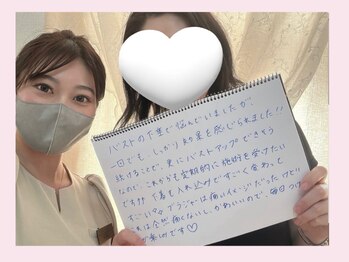 バストの下垂で悩んでいましたが、
一回でも、しっかり効果を感じられました!!
続けることで、更にバストアップできそう
なので、これからも定期的に施術を受けたい
です!! 下着も入れ込みですごく合って
すごい。ブラジャーは痛いイメージだったけど
これは全然痛くないし、かわいいので、毎日つけ
楽しみです♡